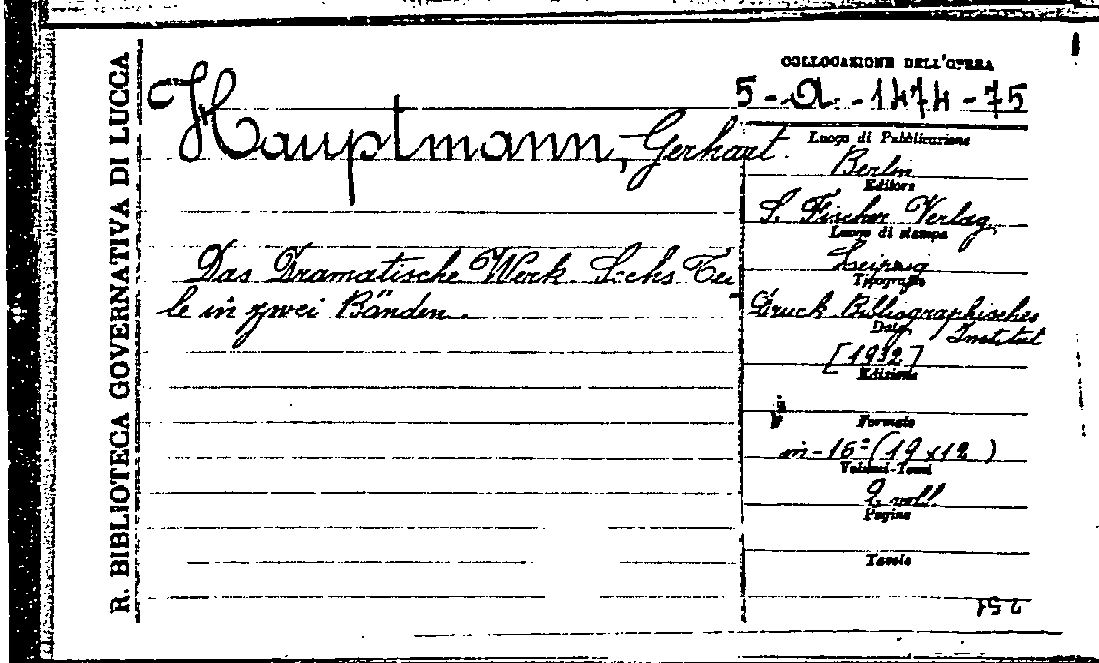 R. BIBLIOTECA GOVERNATIVA DI LUCCA
COLLOCAZIONE DELL'OPERA
5-A.-1474-75
Hauptmann, Gerhart.
Luogo di Pubblicazione
Berlin
Editore
S. Fischer Verlag
Luogo di stampa
Leipzig
Tipografia
Druck Bibliographisches
Institut
Data
[1932]
Edizione
Das Dramatische Werk. Sechs Tei
le in zwei Bänden.
Formato
in-16° (19x12)
Volumi-Tomi
2 voll.
Pagine
Tavole